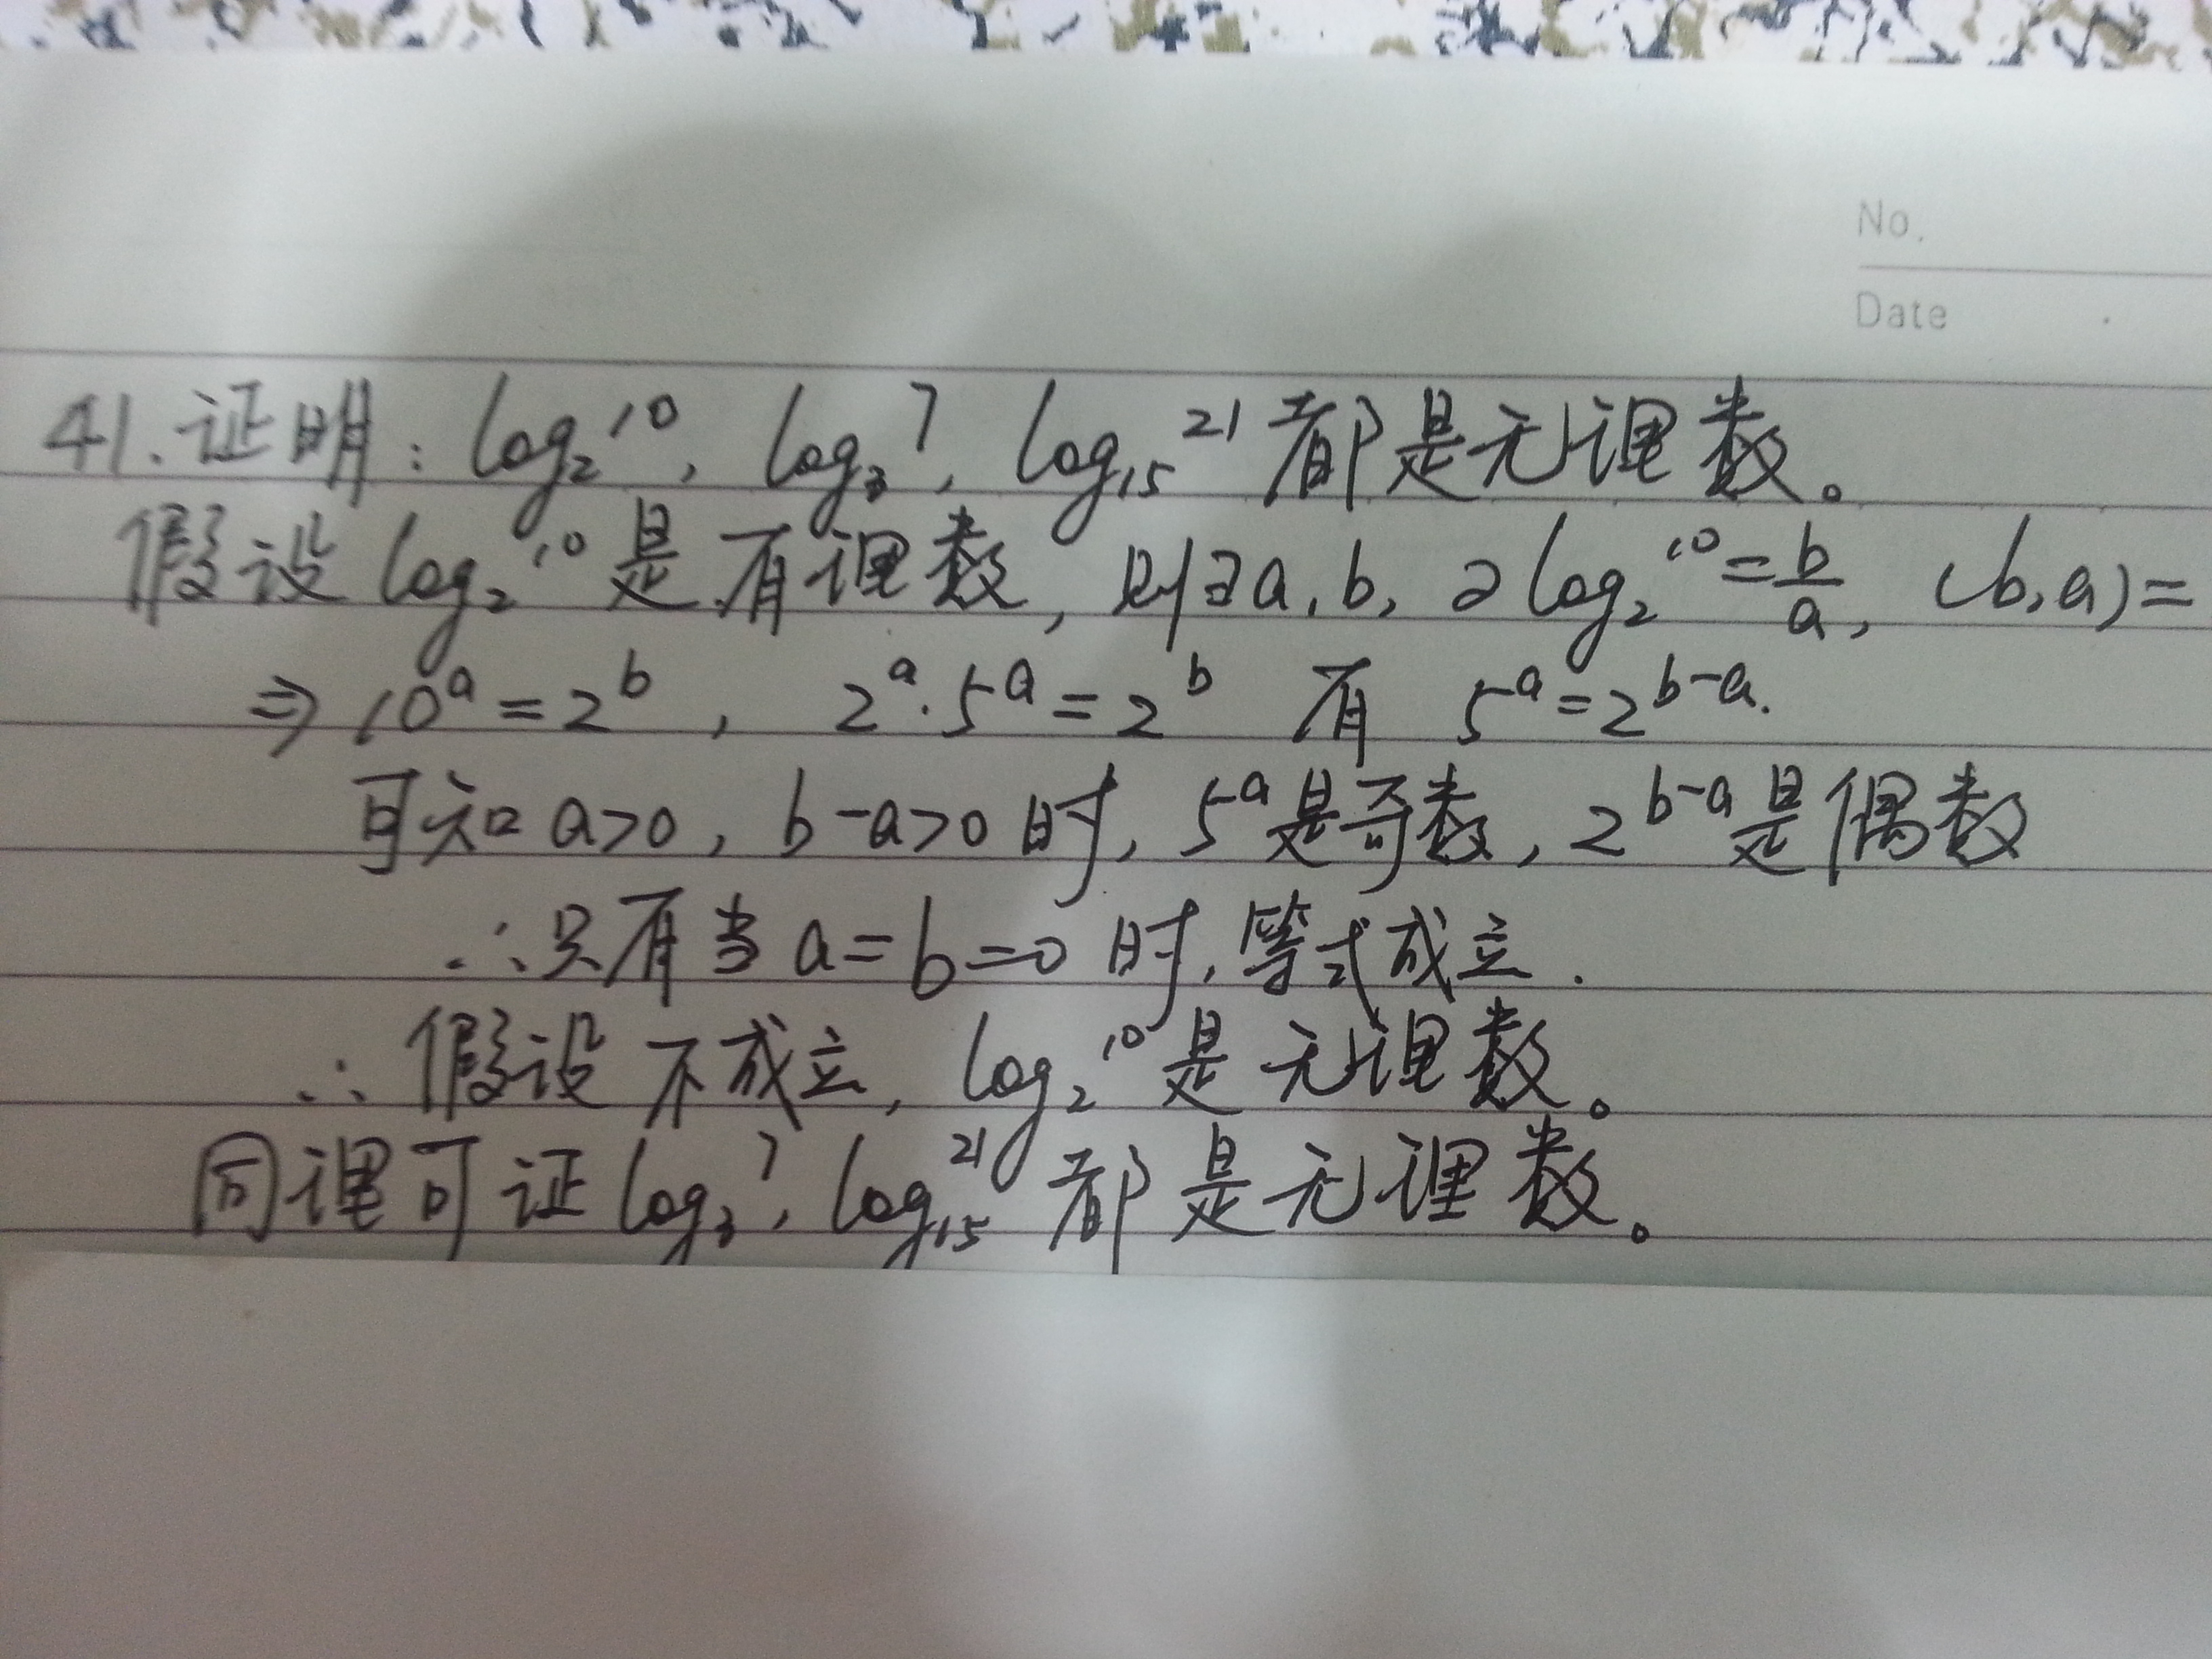 No.
Date
41.证明：log₂¹⁰, log₃⁷, log₁₅²¹都是无理数。
假设log₂¹⁰是有理数，则∃a,b, ∂ log₂¹⁰=b/a, (b,a)=
⇒ 10ᵃ=2ᵇ, 2ᵃ·5ᵃ=2ᵇ 有 5ᵃ=2ᵇ⁻ᵃ.
可知a>0, b-a>0时, 5ᵃ是奇数, 2ᵇ⁻ᵃ是偶数
∴只有当a=b=0时, 等式成立.
∴假设不成立, log₂¹⁰是无理数。
同理可证log₃⁷, log₁₅²¹都是无理数。